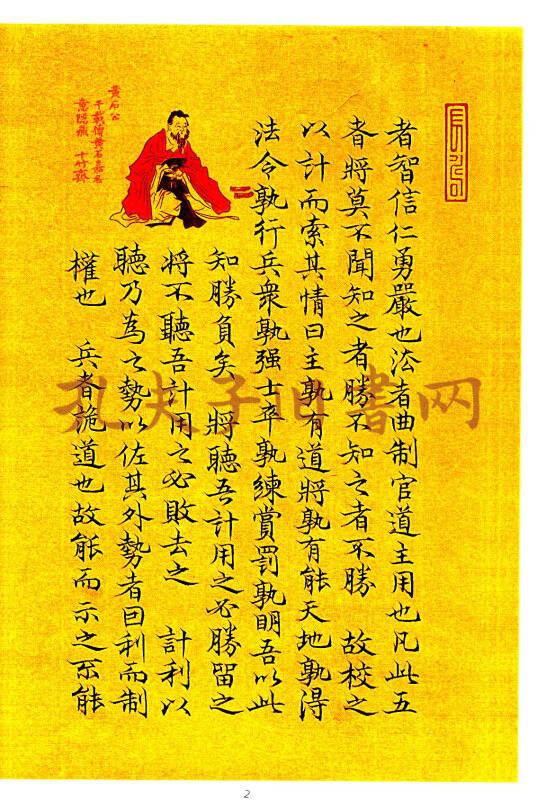 者智信仁勇嚴也法者曲制官道主用也凡此五
者將莫不聞知之者勝不知之者不勝 故校之
以計而索其情曰主孰有道將孰有能天地孰得
法令孰行兵衆孰强士卒孰練賞罰孰明吾以此
知勝負矣 將聽吾計用之必勝留之
将不聽吾計用之必敗去之 計利以
聽乃為之勢以佐其外勢者因利而制
權也 兵者詭道也故能而示之不能
黄石公
千載傳黄石
十竹齋
孔夫子旧书网
2